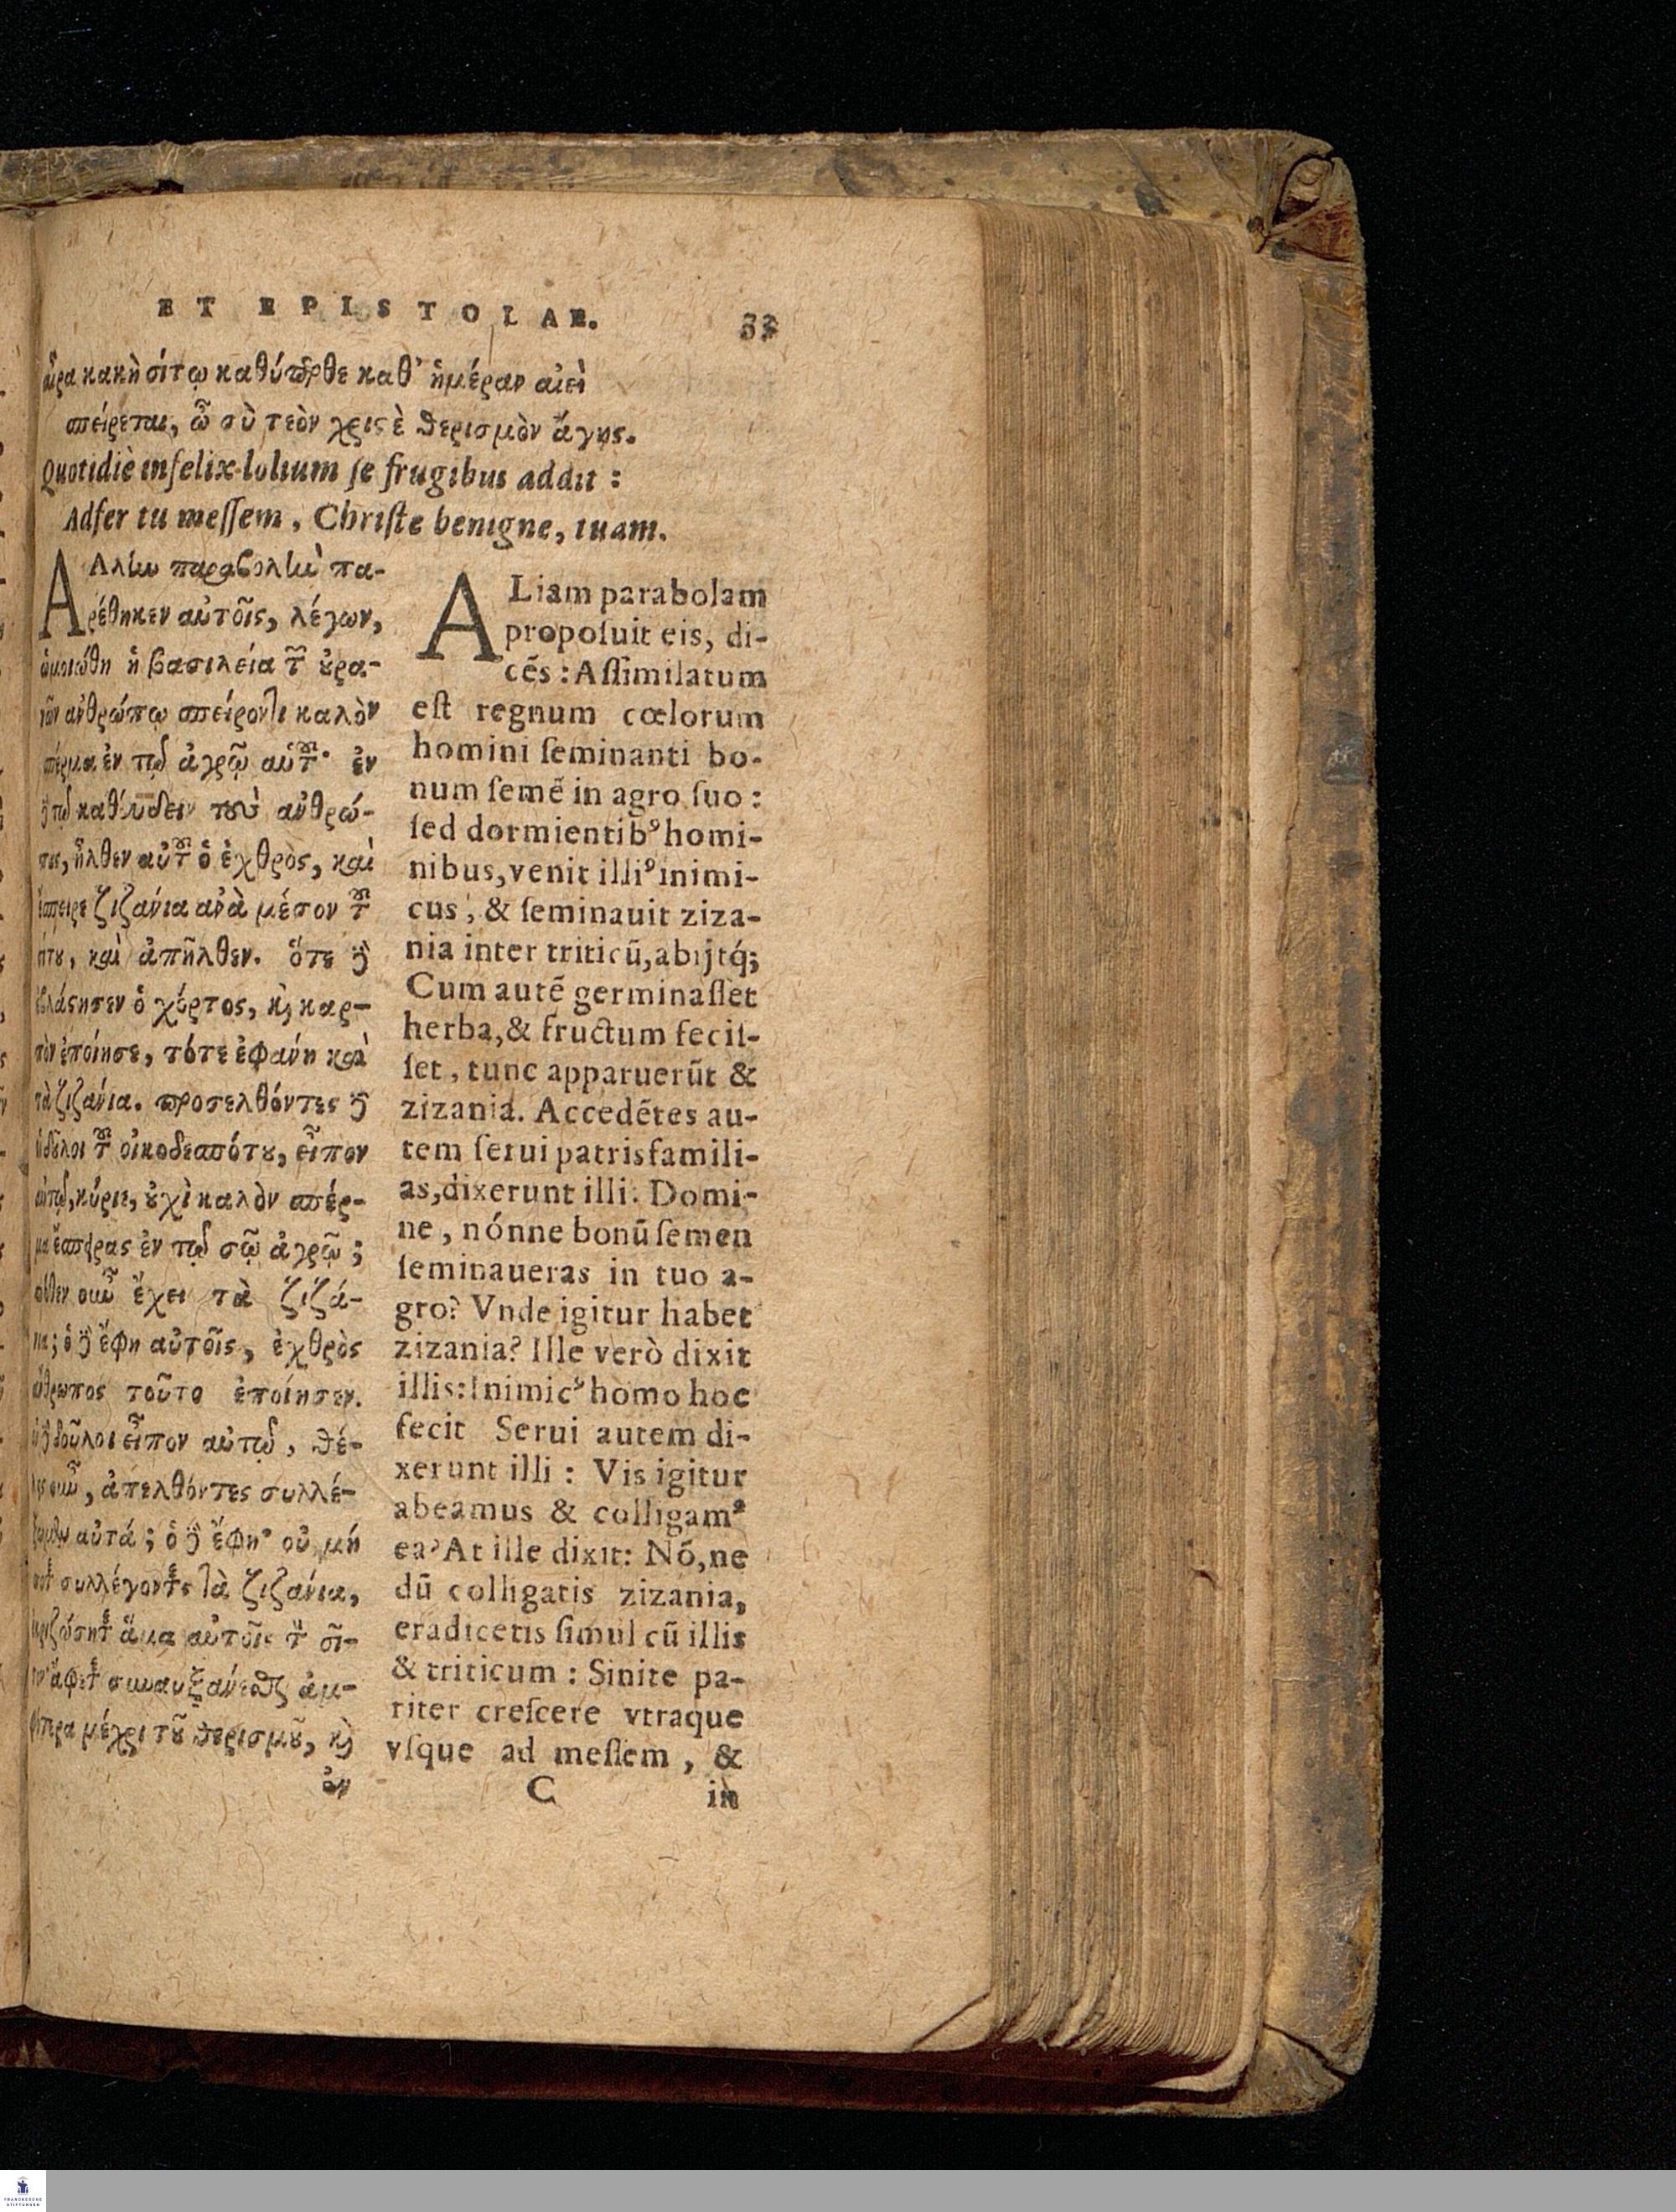 ET EPISTOLAE. 33
αἶρα κακὴ σίτῳ καθύπερθε καθ᾽ ἡμέραν αἰεὶ
σπείρεται, ὦ σὺ τεὸν χριϛὲ θερισμὸν ἄγοις.
Quotidiè infelix lolium ſe frugibus addit :
Adfer tu meſſem, Chriſte benigne, tuam.
Αλλίω παραβολίω πα-
ρέθηκεν αὐτοῖς, λέγων,
ὡμοιώθη ἡ βασιλεία τῶν ȣ̓ρα-
νῶν ἀνθρώπῳ σπείροντι καλὸν
σπέρμα ἐν τῷ ἀγρῷ αὑτοῦ· ἐν
δὲ τῷ καθεύδειν τοὺς ἀνθρώ-
πȣς, ἦλθεν αὐτοῦ ὁ ἐχθρὸς, καὶ
ἔσπειρε ζιζάνια ἀνὰ μέσον τοῦ
σίτȣ, καὶ ἀπῆλθεν. ὅτε δὲ
ἐβλάϛησεν ὁ χόρτος, κ̀ καρ-
πὸν ἐποίησε, τότε ἐφάνη καὶ
τὰ ζιζάνια. προσελθόντες δὲ
οἱ δȣ͂λοι τοῦ οἰκοδεσπότȣ, εἶπον
αὐτῷ, κύριε, ȣ̓χὶ καλὸν σπέρ-
μα ἔσπειρας ἐν τῷ σῷ ἀγρῷ ;
πόθεν οὖν ἔχει τὰ ζιζά-
νια; ὁ δὲ ἔφη αὐτοῖς, ἐχθρὸς
ἄνθρωπος τοῦτο ἐποίησεν.
οἱ δὲ δοῦλοι εἶπον αὐτῷ, θέ-
λεις οὖν, ἀπελθόντες συλλέ-
ξωμεν αὐτά ; ὁ δὲ ἔφη· οὐ, μή
ποτε συλλέγοντες τὰ ζιζάνια,
ἐκριζώσητε ἅμα αὐτοῖς τὸν σῖ-
τον· ἄφετε συναυξάνεσθαι ἀμ-
φότερα μέχρι τȣ͂ θερισμȣ͂, κ̀
ἐν
ALiam parabolam
propoſuit eis, di-
cẽs : Aſſimilatum
eſt regnum cœlorum
homini ſeminanti bo-
num ſemẽ in agro ſuo :
ſed dormientibꝰ homi-
nibus, venit illiꝰ inimi-
cus, & ſeminauit ziza-
nia inter triticũ, abijtq́;
Cum autẽ germinaſſet
herba, & fructum feciſ-
ſet, tunc apparuerũt &
zizania. Accedẽtes au-
tem ſerui patrisfamili-
as, dixerunt illi. Domi-
ne, nónne bonũ ſemen
ſeminaueras in tuo a-
gro? Vnde igitur habet
zizania? Ille verò dixit
illis: Inimicꝰ homo hoc
fecit Serui autem di-
xerunt illi : Vis igitur
abeamus & colligamꝰ
ea? At ille dixit: Nõ, ne
dũ colligatis zizania,
eradicetis ſimul cũ illis
& triticum : Sinite pa-
riter creſcere vtraque
vſque ad meſſem, &
C in
FRANCKESCHE
STIFTUNGEN